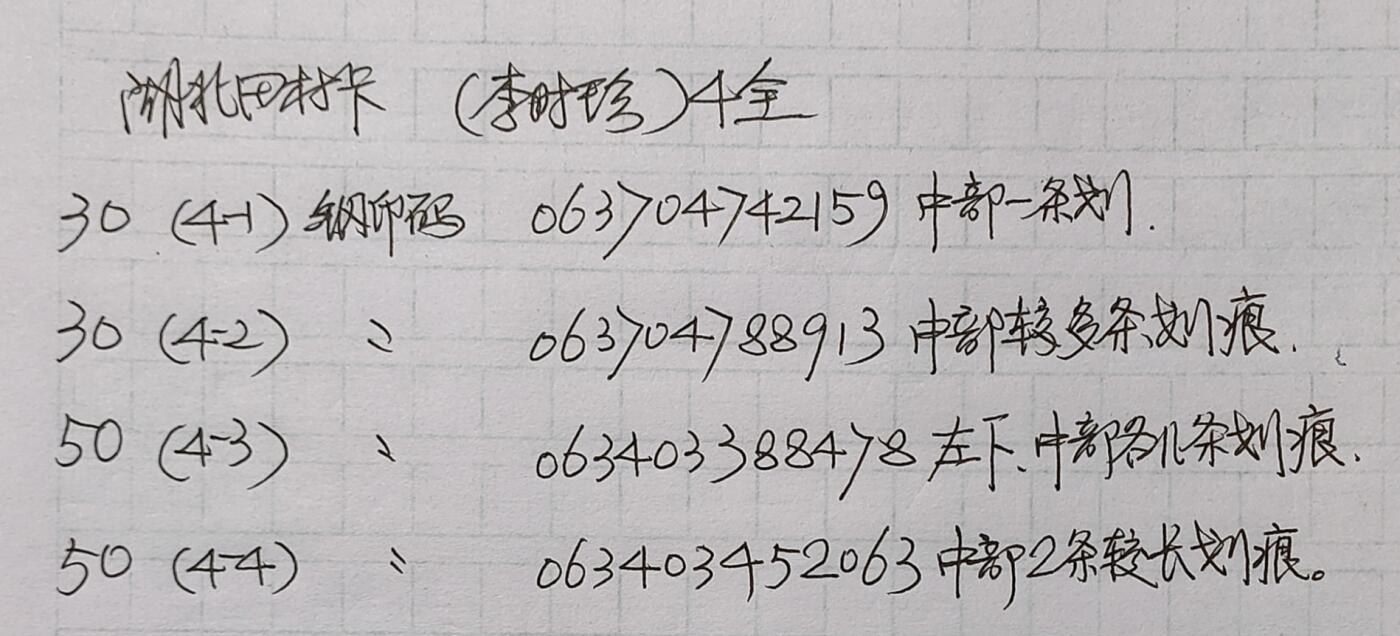 湖北田村卡 (李时珍)4全
30 (4-1) 钢印码 063704742159 中部一条划.
30 (4-2) 〃 063704788913 中部较多条划痕.
50 (4-3) 〃 063403388478 左下、中部各几条划痕.
50 (4-4) 〃 063403452063 中部2条较长划痕。